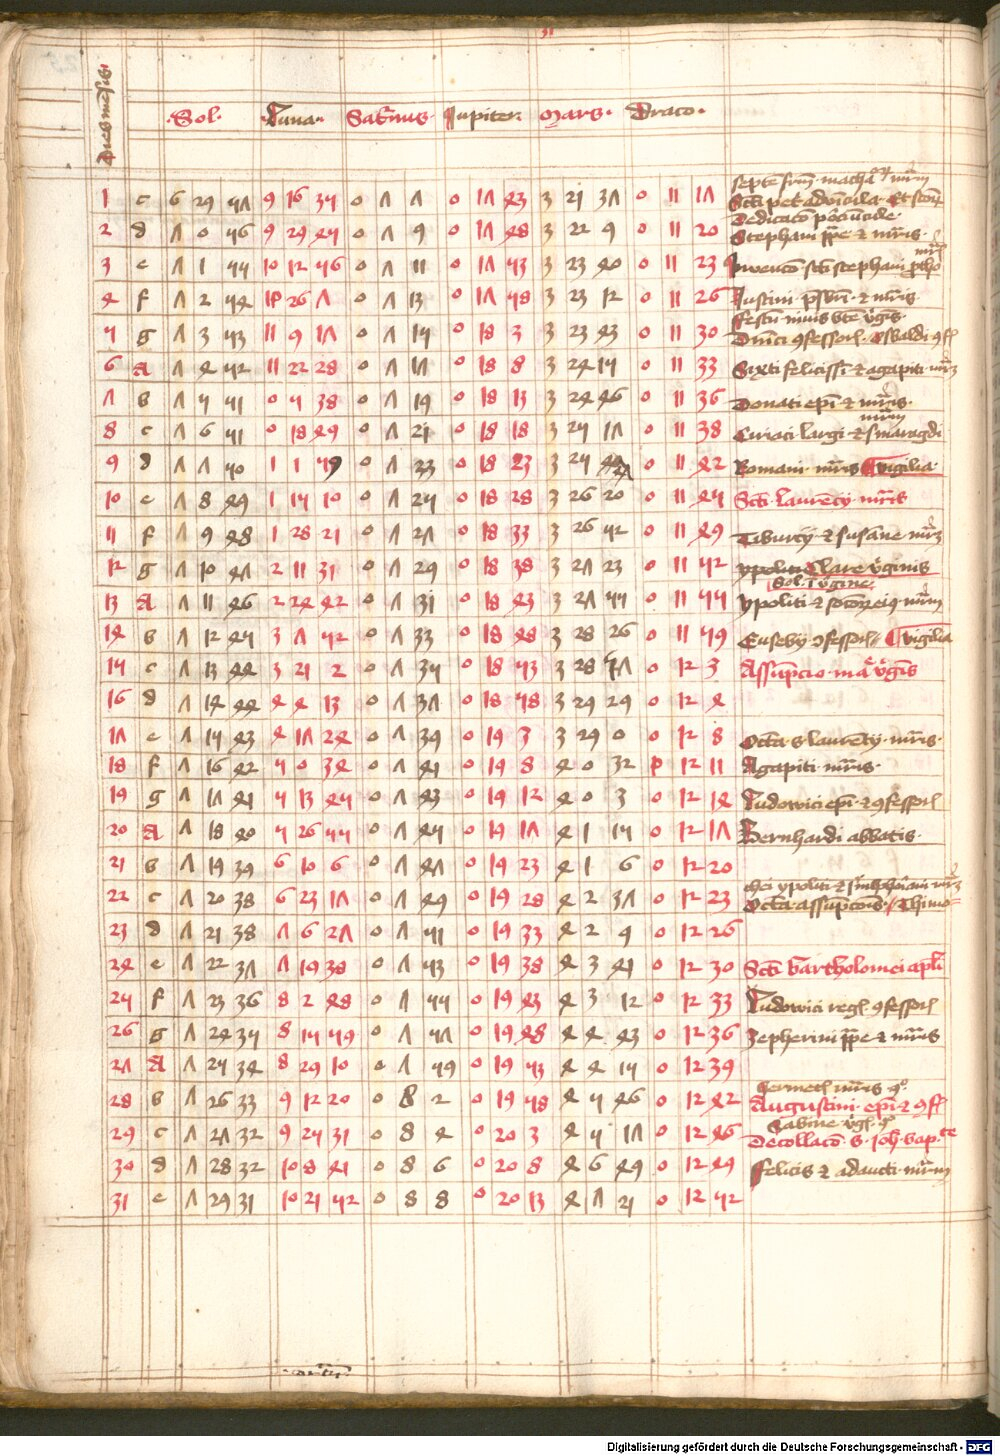 Dies mensis
Sol. Luna. Sat'nus. Jupiter. Mars. Draco.
septē frm̄. machaꝫ mr̄m
1 c 6 29 57 9 16 35 0 7 7 0 17 43 3 21 37 0 11 17 Scti pet' ad vīcula
Dedicatō
2 d 7 0 56 9 29 45 0 7 9 0 17 48 3 22 9 0 11 20 Stephani pp̄e & mr̄is
3 e 7 1 55 10 12 56 0 7 11 0 17 53 3 23 40 0 11 23 Invencō scti stephani
4 f 7 2 54 10 26 7 0 7 13 0 17 58 3 23 12 0 11 26 Justini & mr̄is
Festū nivis
5 g 7 3 53 11 9 17 0 7 15 0 18 3 3 23 43 0 11 30 Dn̄ici ꝯfessorꝭ. Oswaldi
6 A 7 4 52 11 22 28 0 7 17 0 18 8 3 24 15 0 11 33 Sixti felicissī & agapiti mr̄
7 b 7 5 51 0 5 38 0 7 19 0 18 13 3 24 46 0 11 36 Donati ep̄i & mr̄is.
mr̄m
8 c 7 6 51 0 18 49 0 7 21 0 18 18 3 25 17 0 11 38 Ciriaci largi & smaragdi
9 d 7 7 50 1 1 59 0 7 23 0 18 23 3 25 0 11 42 Romani mr̄is vigilia
10 e 7 8 49 1 15 10 0 7 25 0 18 28 3 26 20 0 11 45 Scti laurēcij mr̄is
11 f 7 9 48 1 28 21 0 7 27 0 18 33 3 26 52 0 11 49 Tiburcij & susāne
12 g 7 10 47 2 11 31 0 7 29 0 18 38 3 27 23 0 11 52 ypoliti Clare v'ginis
13 A 7 11 46 2 24 42 0 7 31 0 18 43 3 27 55 0 11 55 ypoliti & mr̄m
14 b 7 12 45 3 7 52 0 7 33 0 18 48 3 28 26 0 11 59 Eusebij ꝯfessorꝭ vigilia
15 c 7 13 44 3 21 2 0 7 35 0 18 53 3 28 57 0 12 3 Assūpcio v'gīs
16 d 7 14 44 4 4 13 0 7 37 0 18 58 3 29 29 0 12 4
17 e 7 15 43 4 17 24 0 7 39 0 19 3 3 29 0 0 12 8 Octa s laurēcij mr̄is.
18 f 7 16 42 5 0 34 0 7 41 0 19 8 4 0 32 0 12 11 Agapiti mr̄is.
19 g 7 17 41 5 13 45 0 7 43 0 19 12 4 0 3 0 12 14 Ludowici ep̄i & ꝯfessorꝭ
20 A 7 18 40 5 26 55 0 7 45 0 19 17 4 1 15 0 12 17 Bernhardi abbatis.
21 b 7 19 39 6 10 6 0 7 47 0 19 23 4 1 6 0 12 20
thei ypoliti &
22 c 7 20 38 6 23 17 0 7 49 0 19 28 4 2 37 0 12 23 Octa assūpcoīs. Thimo=
23 d 7 21 38 7 6 27 0 7 51 0 19 33 4 2 9 0 12 26
24 e 7 22 37 7 19 38 0 7 53 0 19 38 4 3 41 0 12 30 Scti bartholomei apl̄i
25 f 7 23 36 8 2 48 0 7 55 0 19 43 4 3 12 0 12 33 Ludowici regꝭ ꝯfessorꝭ
26 g 7 24 35 8 15 59 0 7 57 0 19 48 4 4 43 0 12 36 Zepherini pp̄e & mr̄is
27 A 7 25 34 8 29 10 0 7 59 0 19 53 4 4 15 0 12 39
hermetꝭ mr̄is
28 b 7 26 33 9 12 20 0 8 2 0 19 58 4 5 46 0 12 42 Augustini ep̄i &
Sabine
29 c 7 27 32 9 25 31 0 8 4 0 20 3 4 5 17 0 12 46 Decollacō S. Joh. bap.te
30 d 7 28 32 10 8 41 0 8 6 0 20 8 4 6 49 0 12 49 Felicis & adaucti mr̄m
31 e 7 29 31 10 21 52 0 8 8 0 20 13 4 7 21 0 12 52
Digitalisierung gefördert durch die Deutsche Forschungsgemeinschaft - DFG